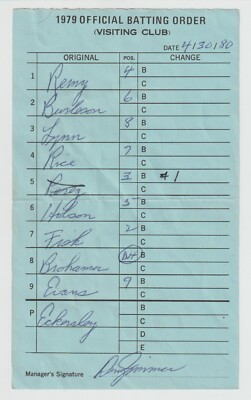 1979 OFFICIAL BATTING ORDER
(VISITING CLUB)
DATE 4/30/80
ORIGINAL POS. CHANGE
1 Remy 4 B
C
2 Burleson 6 B
C
3 Lynn 8 B
C
4 Rice 7 B
C
5 Perez 3 B #1
C
6 Hobson 5 B
C
7 Fisk 2 B
C
8 Brohamer DH B
C
9 Evans 9 B
C
P Eckersley B
C
D
E
Manager's Signature Don Zimmer